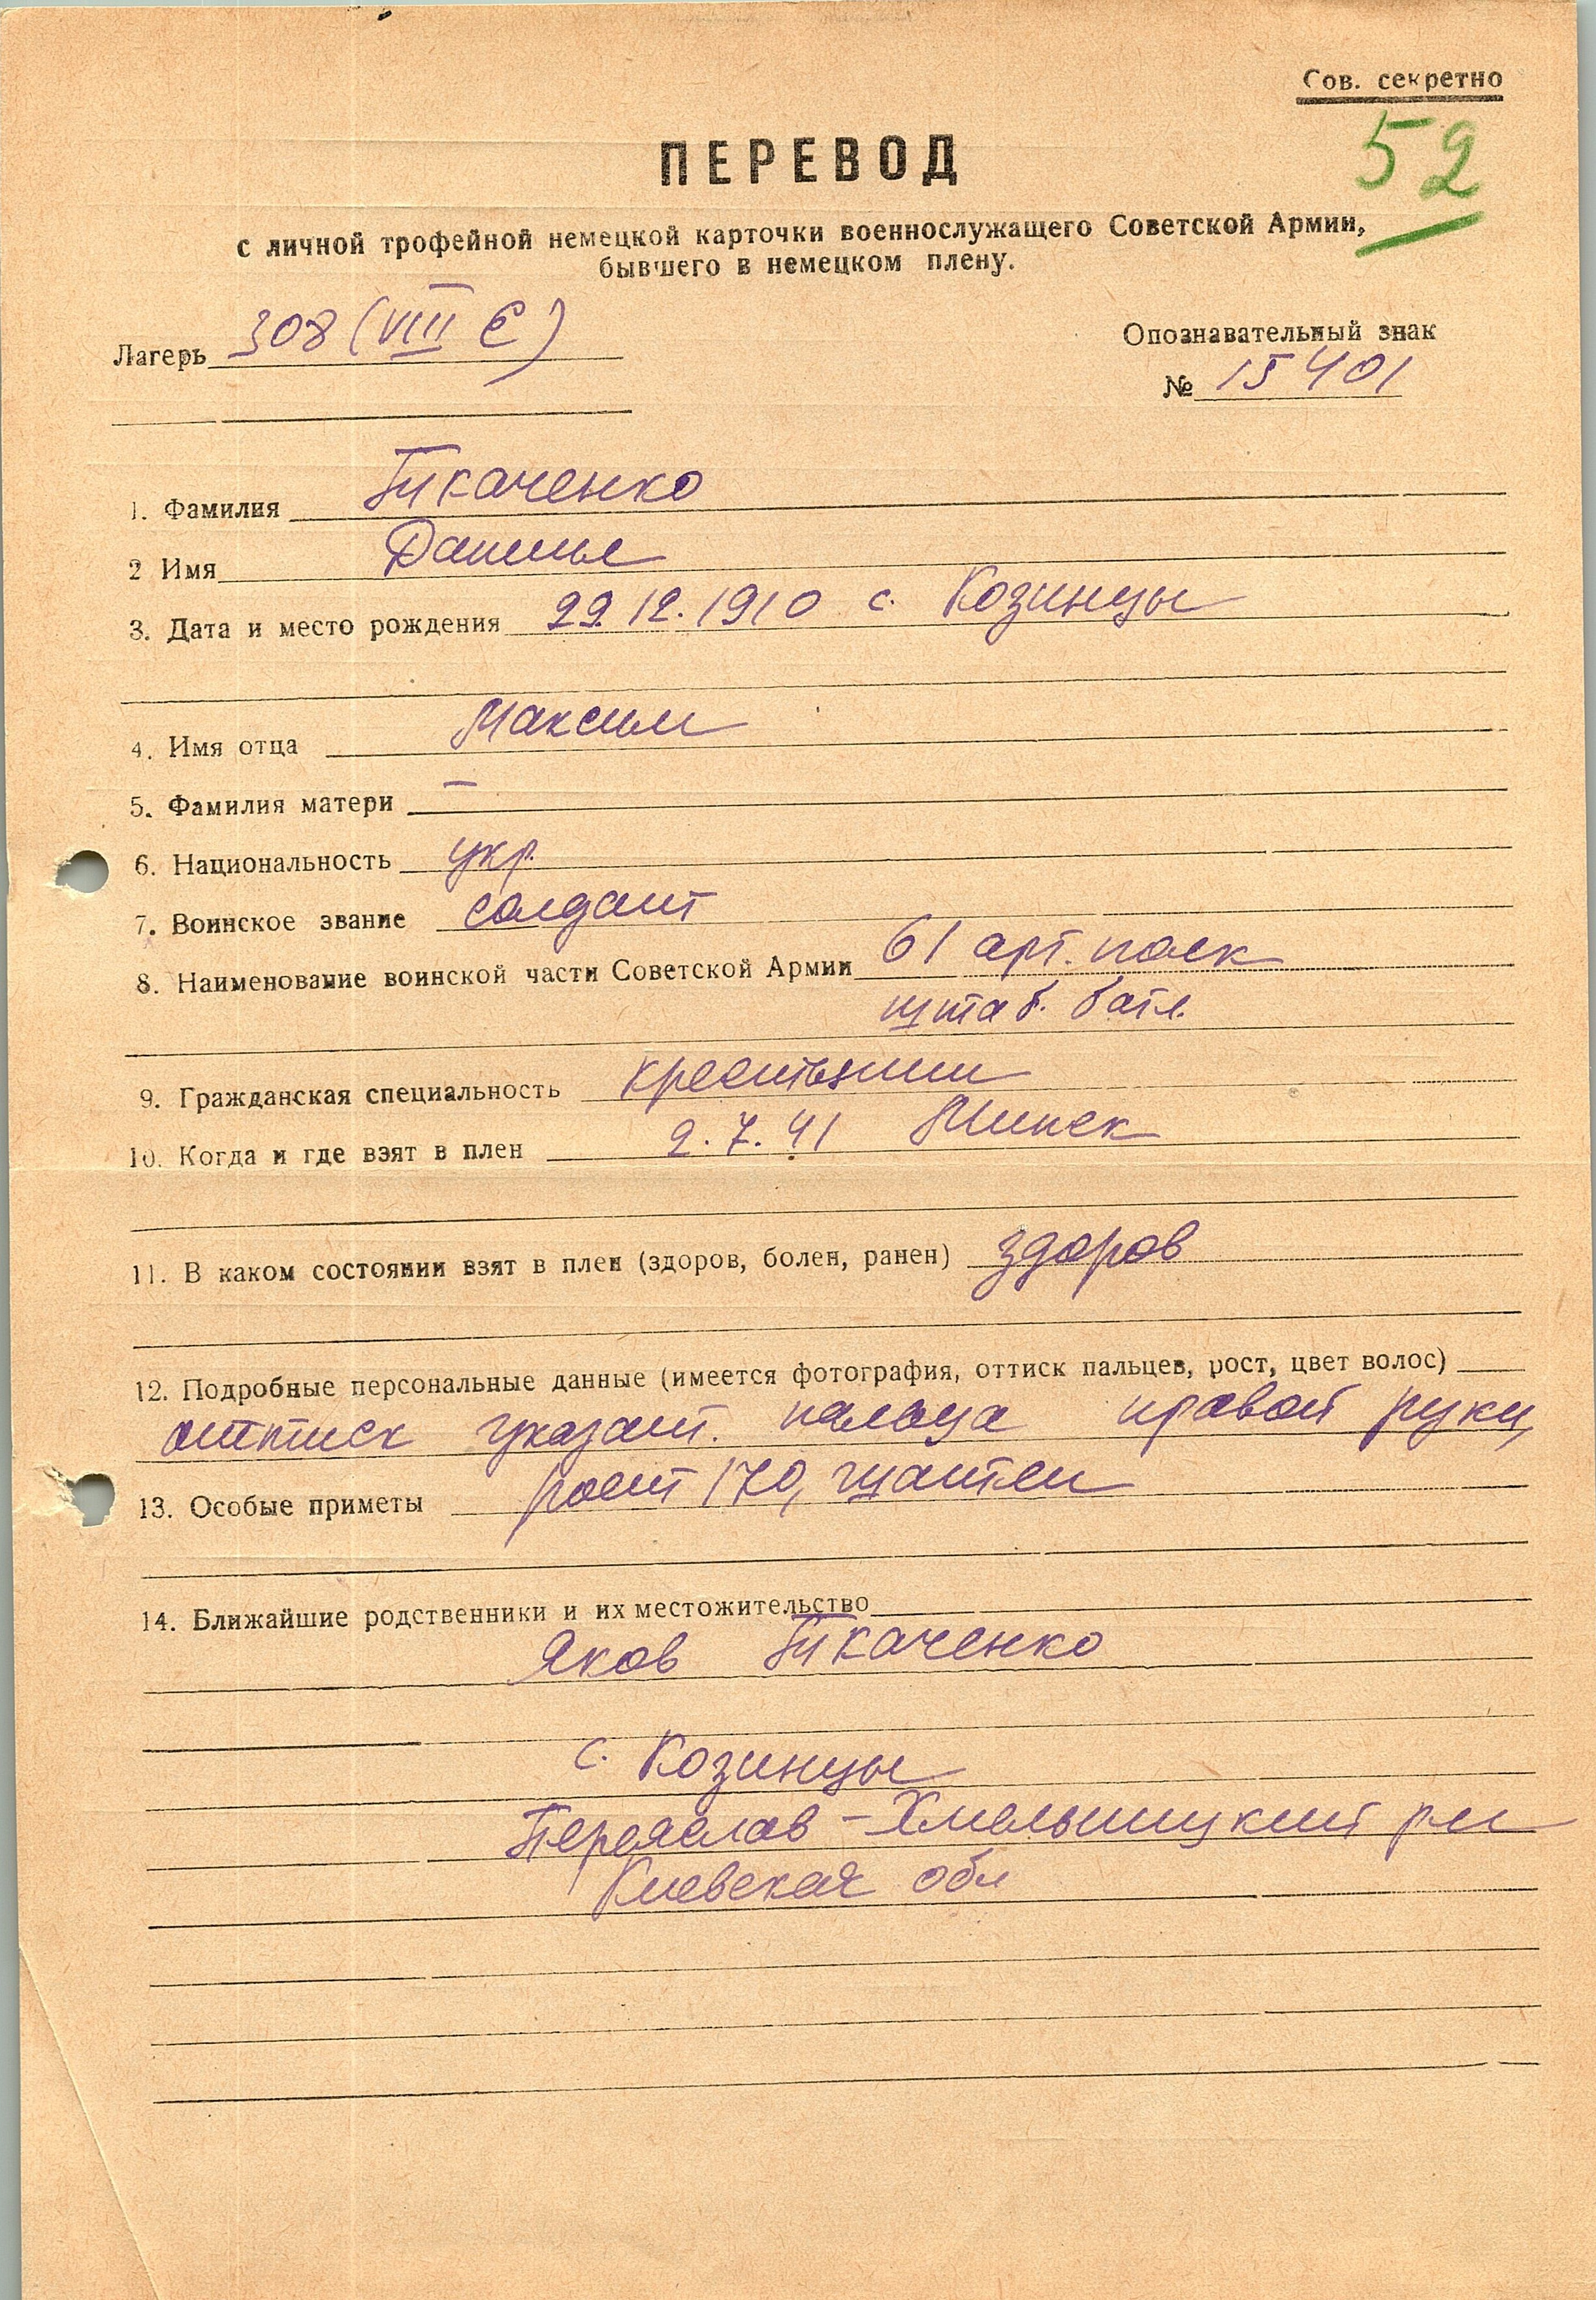 Сов. секретно
52
ПЕРЕВОД
с личной трофейной немецкой карточки военнослужащего Советской Армии,
бывшего в немецком плену.
Лагерь 308 (VIII E)
Опознавательный знак
№ 15401
1. Фамилия Ткаченко
2 Имя Данил
3. Дата и место рождения 29.12.1910 с. Козинцы
4. Имя отца Максим
5. Фамилия матери —
6. Национальность укр.
7. Воинское звание солдат
8. Наименование воинской части Советской Армии 61 арт. полк
штаб. бат.
9. Гражданская специальность крестьянин
10. Когда и где взят в плен 2.7.41 Минск
11. В каком состоянии взят в плен (здоров, болен, ранен) здоров
12. Подробные персональные данные (имеется фотография, оттиск пальцев, рост, цвет волос)
оттиск указат. пальца правой руки,
13. Особые приметы рост 170, шатен
14. Ближайшие родственники и их местожительство
Яков Ткаченко
с. Козинцы
Переяслав-Хмельницкий рн
Киевская обл